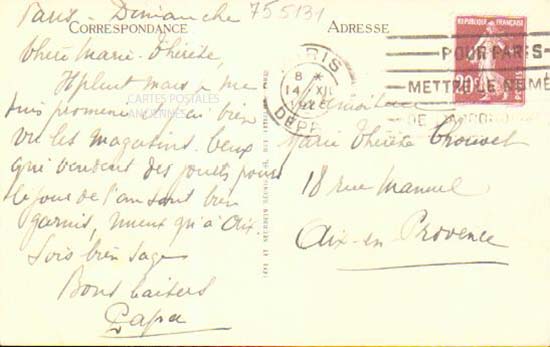 Paris - Dimanche
755131
CORRESPONDANCE
ADRESSE
Chère Marie-Thérèse,
Il pleut mais je me
suis promené et ai bien
vu les magasins. Ceux
qui vendent des jouets pour
le jour de l'an sont bien
garnis, mieux qu'à Aix.
Sois bien sage
Bons baisers
Papa
CARTES POSTALES
ANCIENNES
PARIS
8 *
14 XII
DEP
POUR PARIS
METTRE LE NUMÉ
RÉPUBLIQUE FRANÇAISE
20
Mademoiselle
Marie Thérèse Chouvet
18 rue Manuel
Aix-en Provence